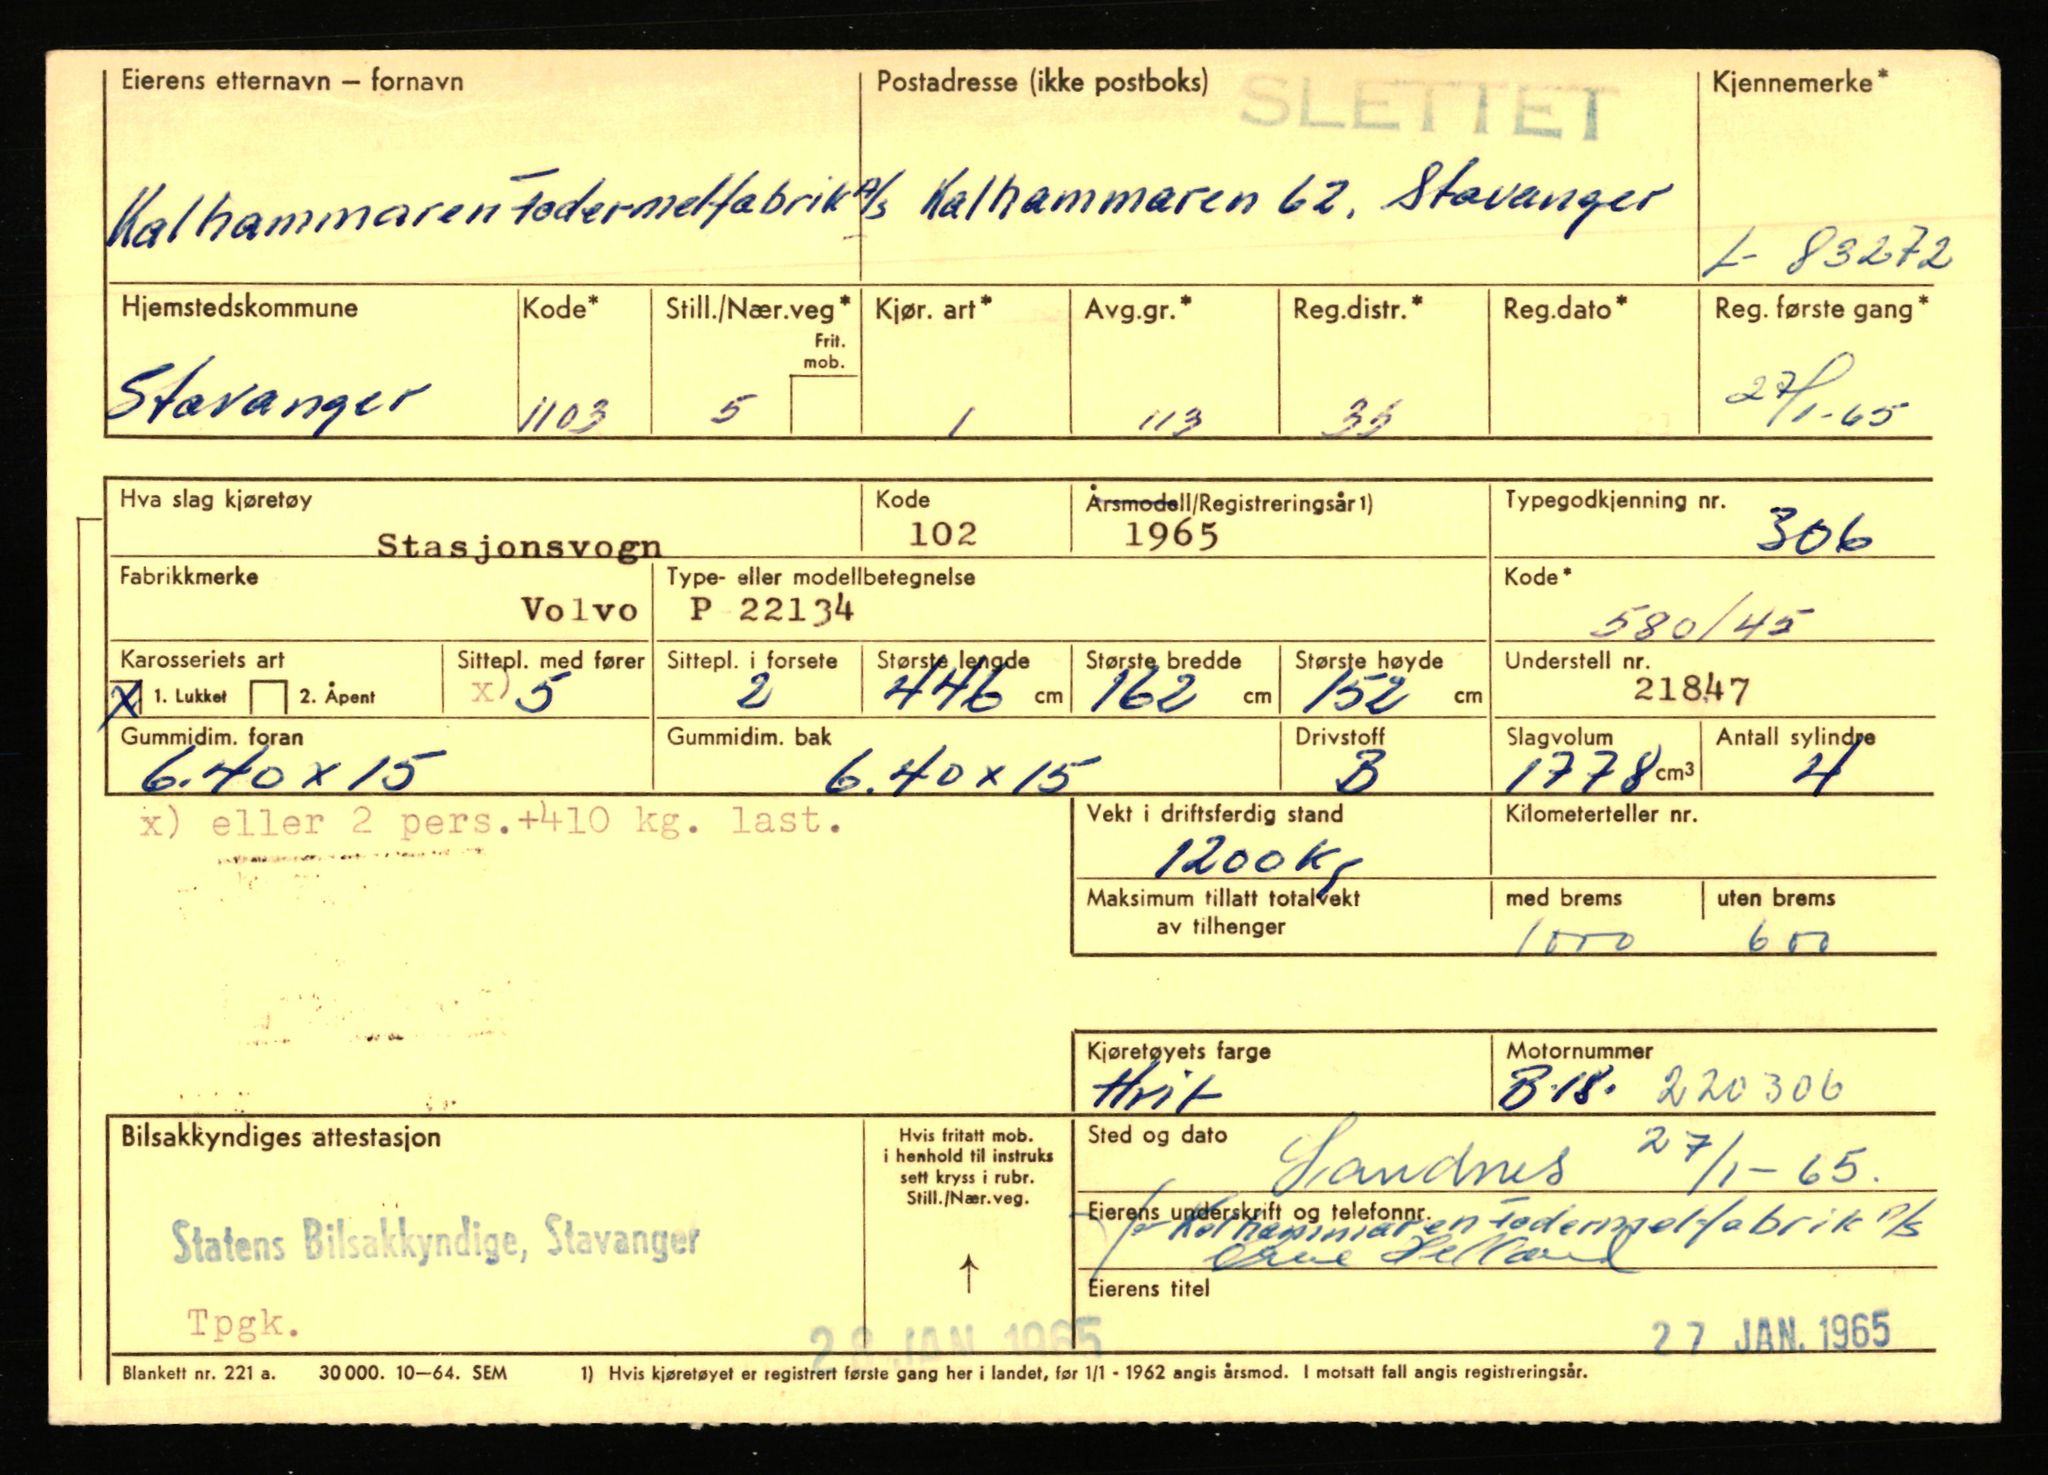 Eierens etternavn — fornavn Postadresse (ikke postboks) SLETTET Kjennemerke*
Kalhammaren Fodermelfabrik A/S Kalhammaren 62. Stavanger
L- 83272
Hjemstedskommune Kode* Still./Nær.veg* Kjør. art* Avg.gr.* Reg.distr.* Reg.dato* Reg. første gang*
Frit.
mob.
Stavanger 1103 5 1 113 33 27/1-65
Hva slag kjøretøy Kode Årsmodell/Registreringsår1) Typegodkjenning nr.
Stasjonsvogn 102 1965 306
Fabrikkmerke Type- eller modellbetegnelse Kode*
Volvo P 22134 580/45
Karosseriets art Sittepl. med fører Sittepl. i forsete Største lengde Største bredde Største høyde Understell nr.
X 1. Lukket 2. Åpent x) 5 2 446 cm 162 cm 152 cm 21847
Gummidim. foran Gummidim. bak Drivstoff Slagvolum Antall sylindre
6.40 x 15 6.40 x 15 B 1778 cm³ 4
x) eller 2 pers.+410 kg. last. Vekt i driftsferdig stand Kilometerteller nr.
1200 Kg
Maksimum tillatt totalvekt med brems uten brems
av tilhenger 1000 600
Kjøretøyets farge Motornummer
Hvit B.18. 220306
Bilsakkyndiges attestasjon Hvis fritatt mob.
i henhold til instruks
sett kryss i rubr.
Still./Nær.veg.
↑
Sted og dato
Sandnes 27/1-65.
Eierens underskrift og telefonnr.
for Kalhammaren Fodermelfabrik A/S
Helland
Statens Bilsakkyndige, Stavanger
Eierens titel
Tpgk.
28 JAN. 1965 27 JAN. 1965
Blankett nr. 221 a. 30 000. 10—64. SEM 1) Hvis kjøretøyet er registrert første gang her i landet, før 1/1 - 1962 angis årsmod. I motsatt fall angis registreringsår.